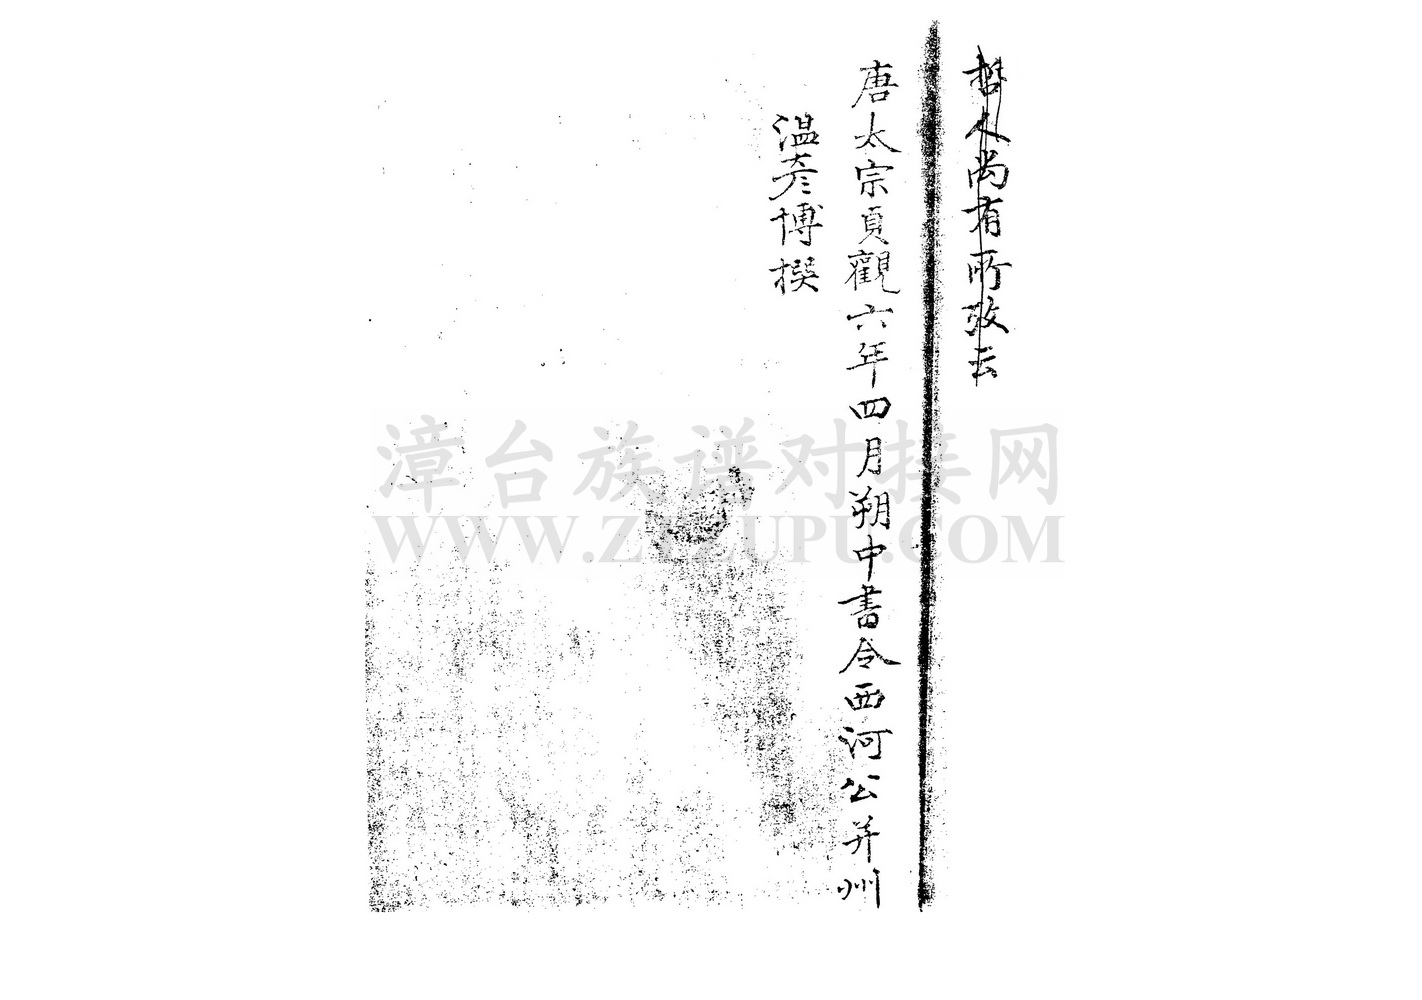 哲人尚有所攷云
唐太宗貞觀六年四月朔中書令西河公并州
温彦博撰
漳台族谱对接网
WWW.ZTZUPU.COM